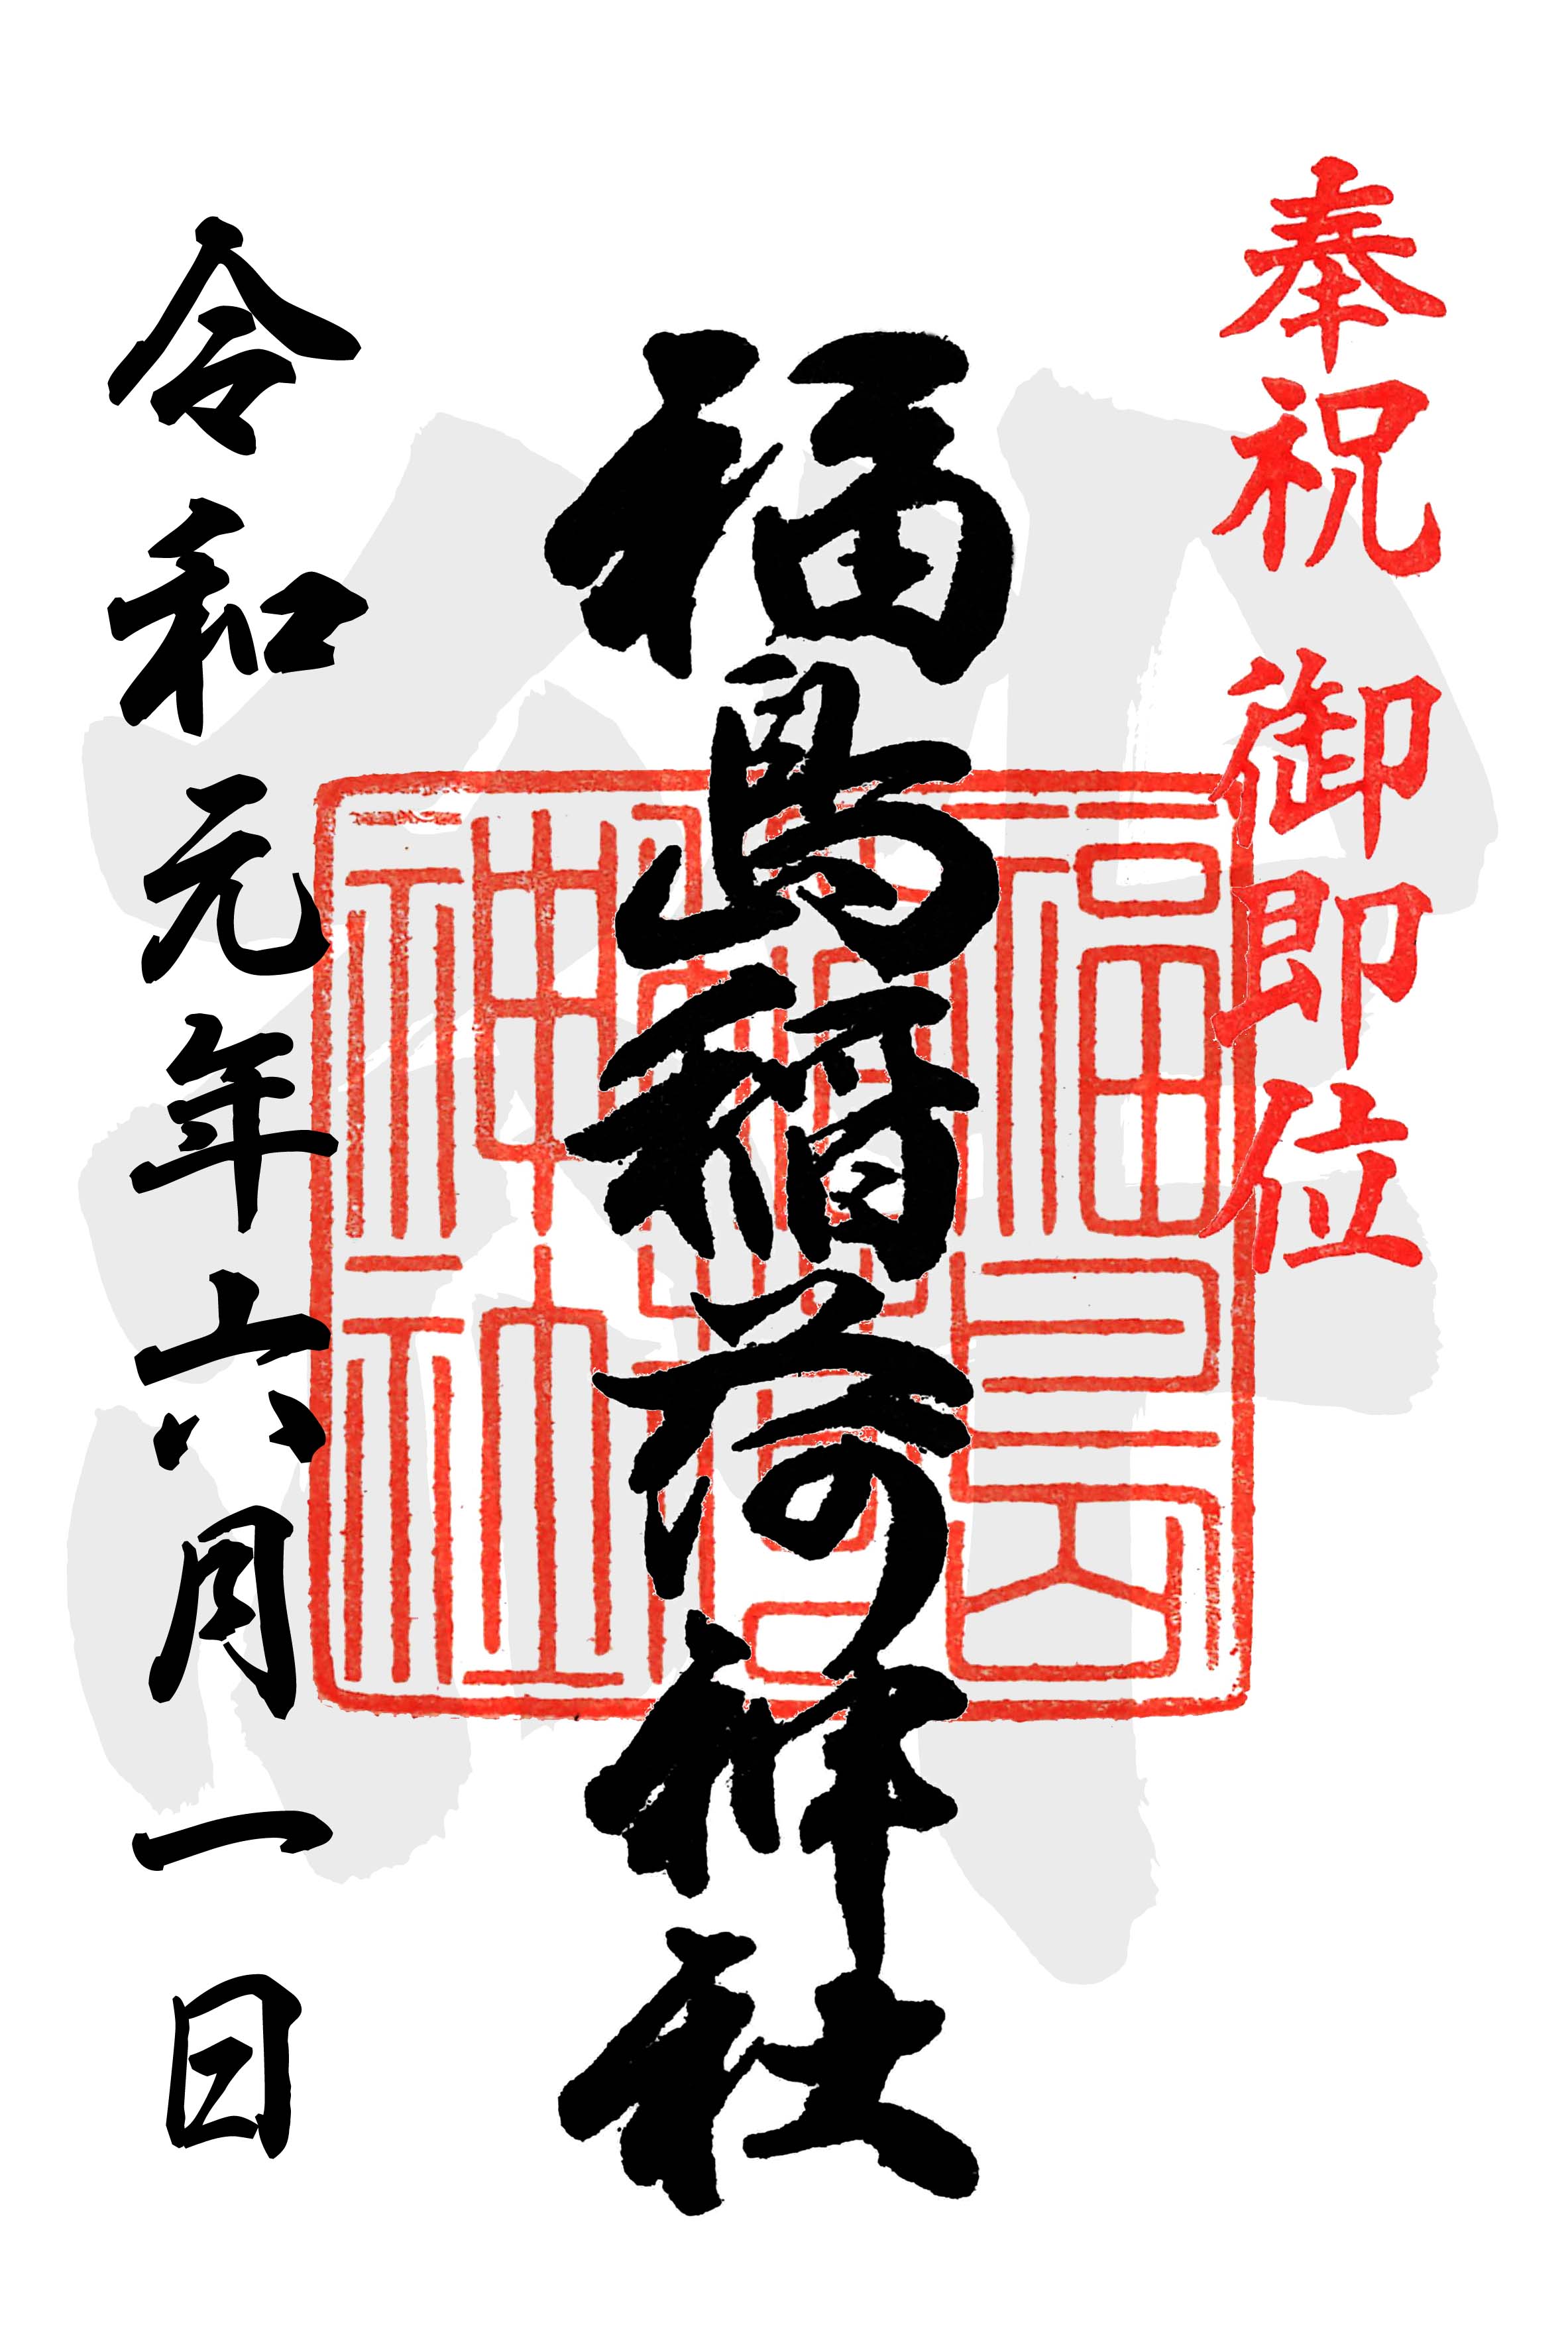 奉祝 御即位
福島稲荷神社
福島稲荷神社
令和元年六月一日